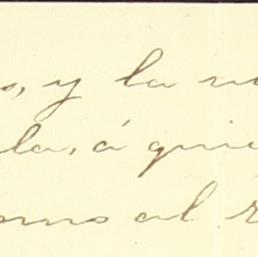 s, y la
la, á quie
mos al